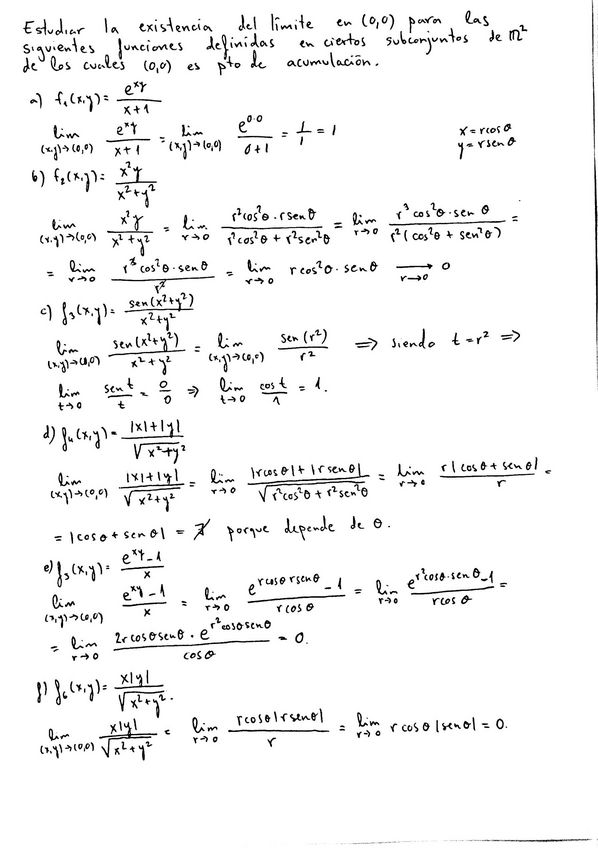 Estudiar la existencia del límite en (0,0) para las
siguientes funciones definidas en ciertos subconjuntos de ℝ²
de los cuales (0,0) es pto de acumulación.
a) f₁(x,y) = e^(xy)/(x+1)
lim (x,y)→(0,0) e^(xy)/(x+1) = lim (x,y)→(0,0) e^(0·0)/(0+1) = 1/1 = 1
x = r cos θ
y = r sen θ
b) f₂(x,y) = x²y/(x²+y²)
lim (x,y)→(0,0) x²y/(x²+y²) = lim r→0 r²cos²θ · r senθ/(r²cos²θ + r²sen²θ) = lim r→0 r³ cos²θ · sen θ/(r²(cos²θ + sen²θ)) =
= lim r→0 r³ cos²θ · senθ/r² = lim r→0 r cos²θ · senθ ⟶ r→0 0
c) f₃(x,y) = sen(x²+y²)/(x²+y²)
lim (x,y)→(0,0) sen(x²+y²)/(x²+y²) = lim (x,y)→(0,0) sen(r²)/r² ⇒ siendo t = r² ⇒
lim t→0 sen t/t = 0/0 ⇒ lim t→0 cos t/1 = 1.
d) f₄(x,y) = (|x|+|y|)/√(x²+y²)
lim (x,y)→(0,0) (|x|+|y|)/√(x²+y²) = lim r→0 (|r cosθ| + |r senθ|)/√(r²cos²θ + r²sen²θ) = lim r→0 r|cosθ + senθ|/r =
= |cosθ + senθ| = ∄ porque depende de θ.
e) f₃(x,y) = (e^(xy) - 1)/x
lim (x,y)→(0,0) (e^(xy) - 1)/x = lim r→0 (e^(r cosθ r senθ) - 1)/(r cosθ) = lim r→0 (e^(r²cosθ·senθ) - 1)/(r cosθ) =
= lim r→0 2r cosθ senθ · e^(r²cosθ senθ)/cosθ = 0.
f) f₆(x,y) = x|y|/√(x²+y²).
lim (x,y)→(0,0) x|y|/√(x²+y²) = lim r→0 r cosθ |r senθ|/r = lim r→0 r cosθ |senθ| = 0.